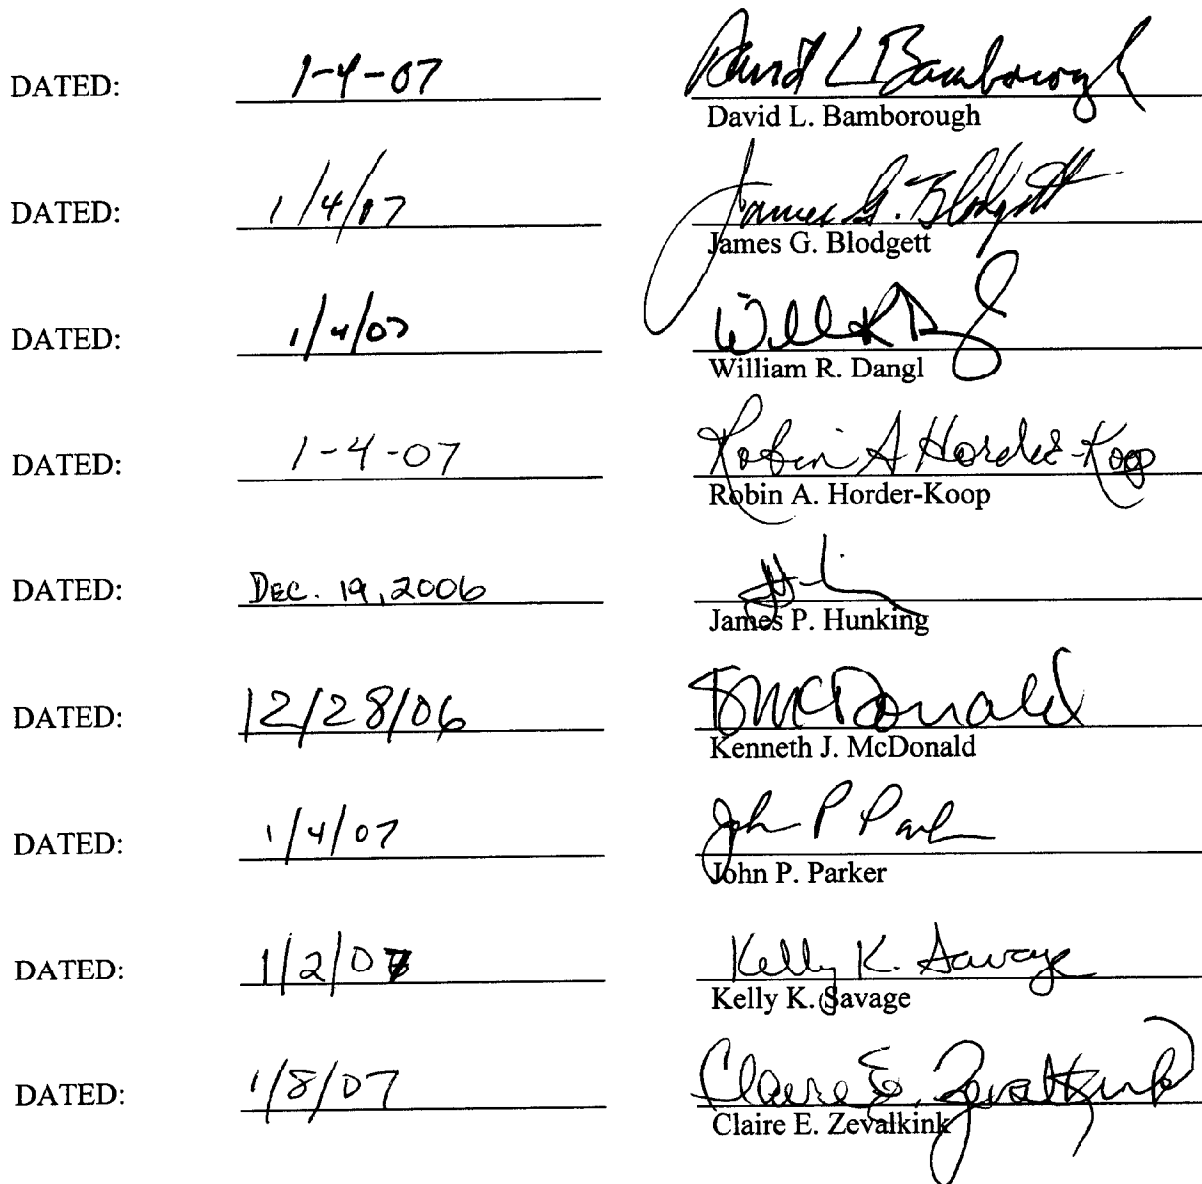 DATED: 1-4-07 David L Bamborough
David L. Bamborough
DATED: 1/4/07 James G. Blodgett
James G. Blodgett
DATED: 1/4/07 Will R D
William R. Dangl
DATED: 1-4-07 Robin A Horder-Koop
Robin A. Horder-Koop
DATED: DEC. 19, 2006
James P. Hunking
DATED: 12/28/06 McDonald
Kenneth J. McDonald
DATED: 1/4/07 John P Parker
John P. Parker
DATED: 1/2/07 Kelly K. Savage
Kelly K. Savage
DATED: 1/8/07 Claire E. Zevalkink
Claire E. Zevalkink